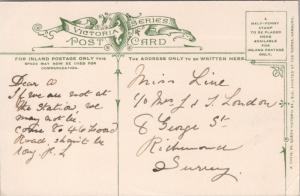 VICTORIA SERIES
POST CARD
A HALF-PENNY STAMP TO BE PLACED HERE AVAILABLE FOR INLAND POSTAGE ONLY.
FOR INLAND POSTAGE ONLY THIS SPACE MAY NOW BE USED FOR COMMUNICATION.
THE ADDRESS ONLY TO BE WRITTEN HERE.
Dear A
If we are not at
the Station, we
may not be.
Come to 46
Road,
Miss Line
c/o Mrs J & S London
8 George St
Richmond
Surrey